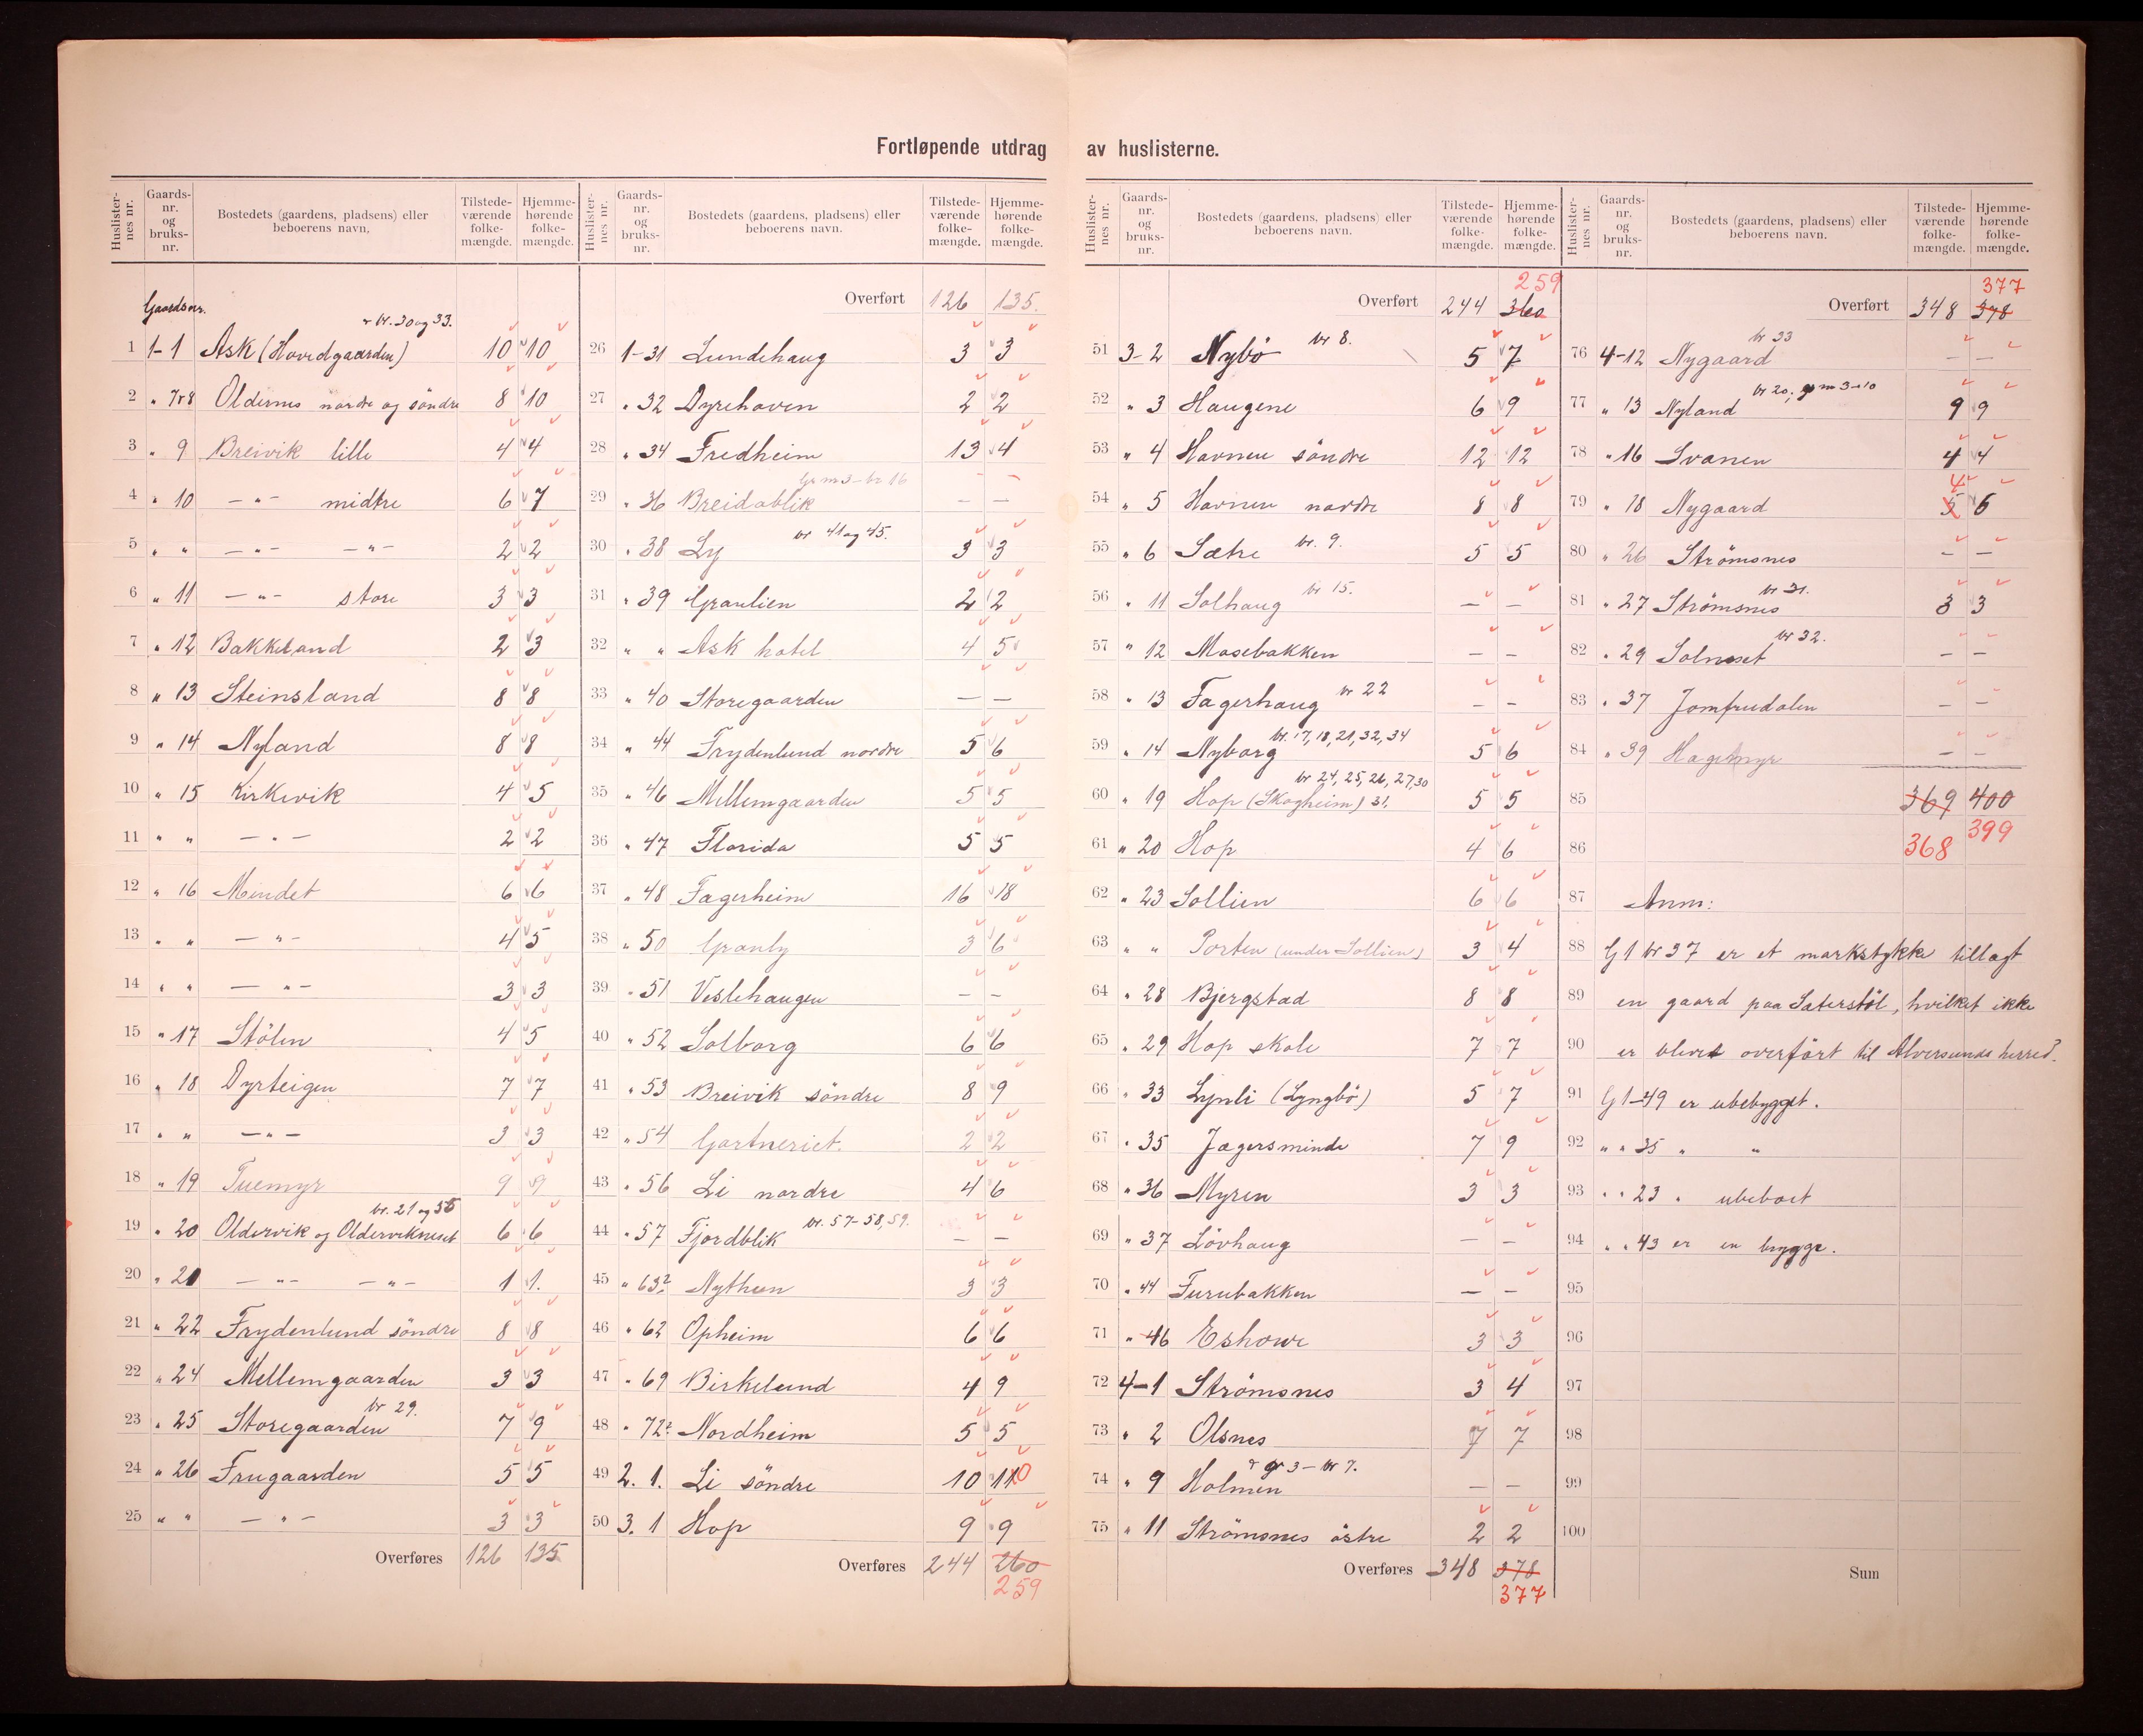 Fortløpende utdrag av huslisterne.
Huslisternes nr. Gaardsnr. og bruksnr. Bostedets (gaardens, pladsens) eller beboerens navn, Tilstedeværende folkemængde. Hjemmehørende folkemængde.
Gaardsnr.
1 1-1 Ask (Hovedgaarden) + br. 30 og 33. 10 10
2 " 7+8 Oldernes nordre og söndre 8 10
3 " 9 Breivik lille 4 4
4 " 10 — " — midtre 6 7
5 " " — " — — " — 2 2
6 " 11 — " — store 3 3
7 " 12 Bakkeland 2 3
8 " 13 Steinsland 8 8
9 " 14 Nyland 8 8
10 " 15 Kirkevik 4 5
11 " " — " — 2 2
12 " 16 Mundet 6 6
13 " " — " — 4 5
14 " " — " — 3 3
15 " 17 Stölen 4 5
16 " 18 Dyrteigen 7 7
17 " " — " — 3 3
18 " 19 Tuemyr 9 9
19 " 20 Oldervik og Oldervikneset br. 21 og 55 6 6
20 " 20 — " — — " — 1 1.
21 " 22 Frydenlund söndre 8 8
22 " 24 Mellemgaarden 3 3
23 " 25 Storegaarden br 29. 7 9
24 " 26 Frugaarden 5 5
25 " " — " — 3 3
Overføres 126 135
Huslisternes nr. Gaardsnr. og bruksnr. Bostedets (gaardens, pladsens) eller beboerens navn. Tilstedeværende folkemængde. Hjemmehørende folkemængde.
Overført 126 135.
26 1-31 Lundehaug 3 3
27 " 32 Dyrehaven 2 2
28 " 34 Fredheim 13 4
29 " 36 Breidablik Gr no 3 - br 16 — —
30 " 38 Ly br 41 og 45. 3 3
31 " 39 Granlien 2 2
32 " " Ask hotel 4 5
33 " 40 Storegaarden — —
34 " 44 Frydenlund nordre 5 6
35 " 46 Mellemgaarden 5 5
36 " 47 Florida 5 5
37 " 48 Fagerheim 16 18
38 " 50 Granly 3 6
39 " 51 Veslehaugen — —
40 " 52 Solborg 6 6
41 " 53 Breivik söndre 8 9
42 " 54 Gartneriet. 2 2
43 " 56 Li nordre 4 6
44 " 57 Fjordblik br. 57-58, 59. — —
45 " 63² Nythun 3 3
46 " 62 Opheim 6 6
47 " 69 Birkelund 4 9
48 " 72² Nordheim 5 5
49 2. 1. Li söndre 10 11 10
50 3. 1 Hop 9 9
Overføres 244 260
259
Huslisternes nr. Gaardsnr. og bruksnr. Bostedets (gaardens, pladsens) eller beboerens navn. Tilstedeværende folkemængde. Hjemmehørende folkemængde.
259
Overført 244 360
51 3-2 Nybö br 8. 5 7
52 " 3 Haugene 6 9
53 " 4 Havnen söndre 12 12
54 " 5 Havnen nordre 8 8
55 " 6 Sætre br. 9. 5 5
56 " 11 Solhaug br 15. — —
57 " 12 Masebakken — —
58 " 13 Fagerhaug br 22 — —
59 " 14 Nyborg br. 17, 18, 21, 32, 34 5 6
60 " 19 Hop (Skogheim) br 24, 25, 26, 27, 30 31. 5 5
61 " 20 Hop 4 6
62 " 23 Sollien 6 6
63 " " Porten (under Sollien) 3 4
64 " 28 Bjergstad 8 8
65 " 29 Hop skole 7 7
66 " 33 Lynli (Lyngbö) 5 7
67 " 35 Jægersminde 7 9
68 " 36 Myren 3 3
69 " 37 Lövhaug — —
70 " 44 Furubakken — —
71 " 46 Eshowe 3 3
72 4-1 Strömsnes 3 4
73 " 2 Olsnes 7 7
74 " 9 Holmen + gr 3 - br 7. — —
75 " 11 Strömsnes östre 2 2
Overføres 348 378
377
Huslisternes nr. Gaardsnr. og bruksnr. Bostedets (gaardens, pladsens) eller beboerens navn. Tilstedeværende folkemængde. Hjemmehørende folkemængde.
377
Overført 348 378
76 4-12 Nygaard br 33 — —
77 " 13 Nyland br 20, gr no 3-10 9 9
78 " 16 Svanen 4 4
79 " 18 Nygaard 5 4 6
80 " 26 Strömsnes — —
81 " 27 Strömsnes br 31. 3 3
82 " 29 Solneset br 32. — —
83 " 37 Jomfrudalen — —
84 " 39 Hagemyr — —
85 369 400
86 368 399
87 Anm:
88 G 1 br 37 er et markstykke tillagt
89 en gaard paa Saterstöl, hvilket ikke
90 er blevet overfört til Alversunds herred.
91 G 1-49 er ubebygget.
92 " " 35 " "
93 " " 23 " ubeboet
94 " " 43 er en brygge.
95
96
97
98
99
100
Sum